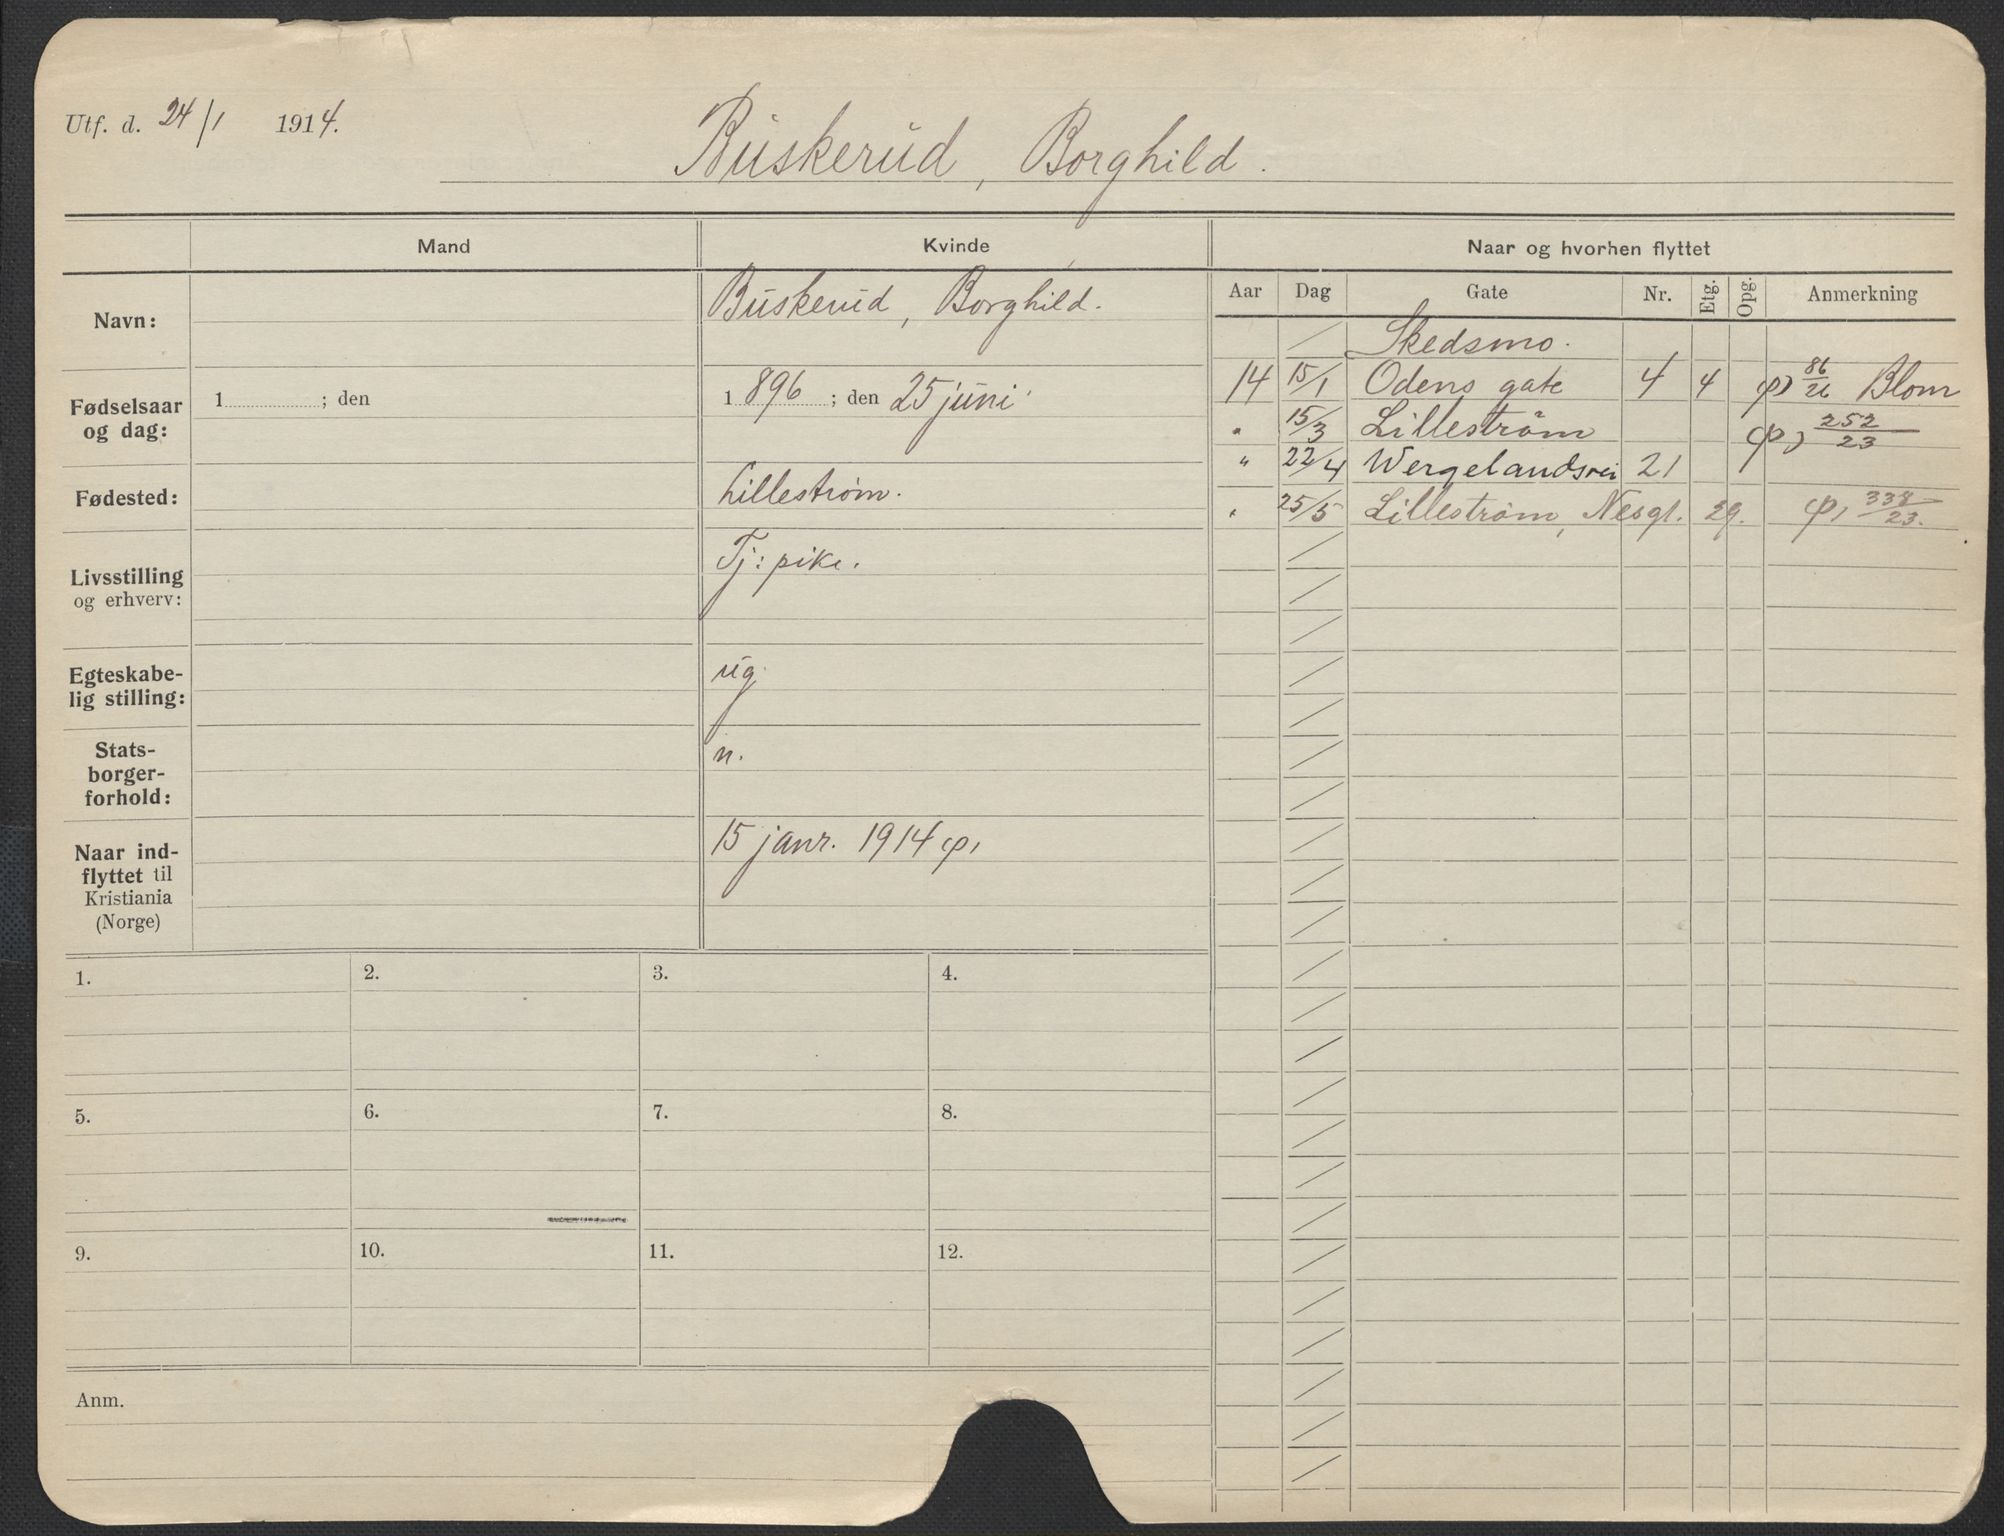 Utf. d. 24/1 1914.
Buskerud, Borghild.
Mand Kvinde Naar og hvorhen flyttet
Aar Dag Gate Nr. Etg. Opg. Anmerkning
Navn: Buskerud, Borghild.
Fødselsaar og dag: 1 ; den 1896 ; den 25 juni
Fødested: Lillestrøm.
Livsstilling og erhverv: Tj: pike.
Egteskabe-
lig stilling: ug.
Stats-
borger-
forhold: n.
Naar ind-
flyttet til
Kristiania
(Norge) 15 janr. 1914
Skedsmo.
14 15/1 Odens gate 4 4 86/26 Blom
" 15/3 Lillestrøm 252/23
" 22/4 Wergelandsvei 21
" 25/5 Lillestrøm, Nesgt. 29. 338/23.
1. 2. 3. 4.
5. 6. 7. 8.
9. 10. 11. 12.
Anm.